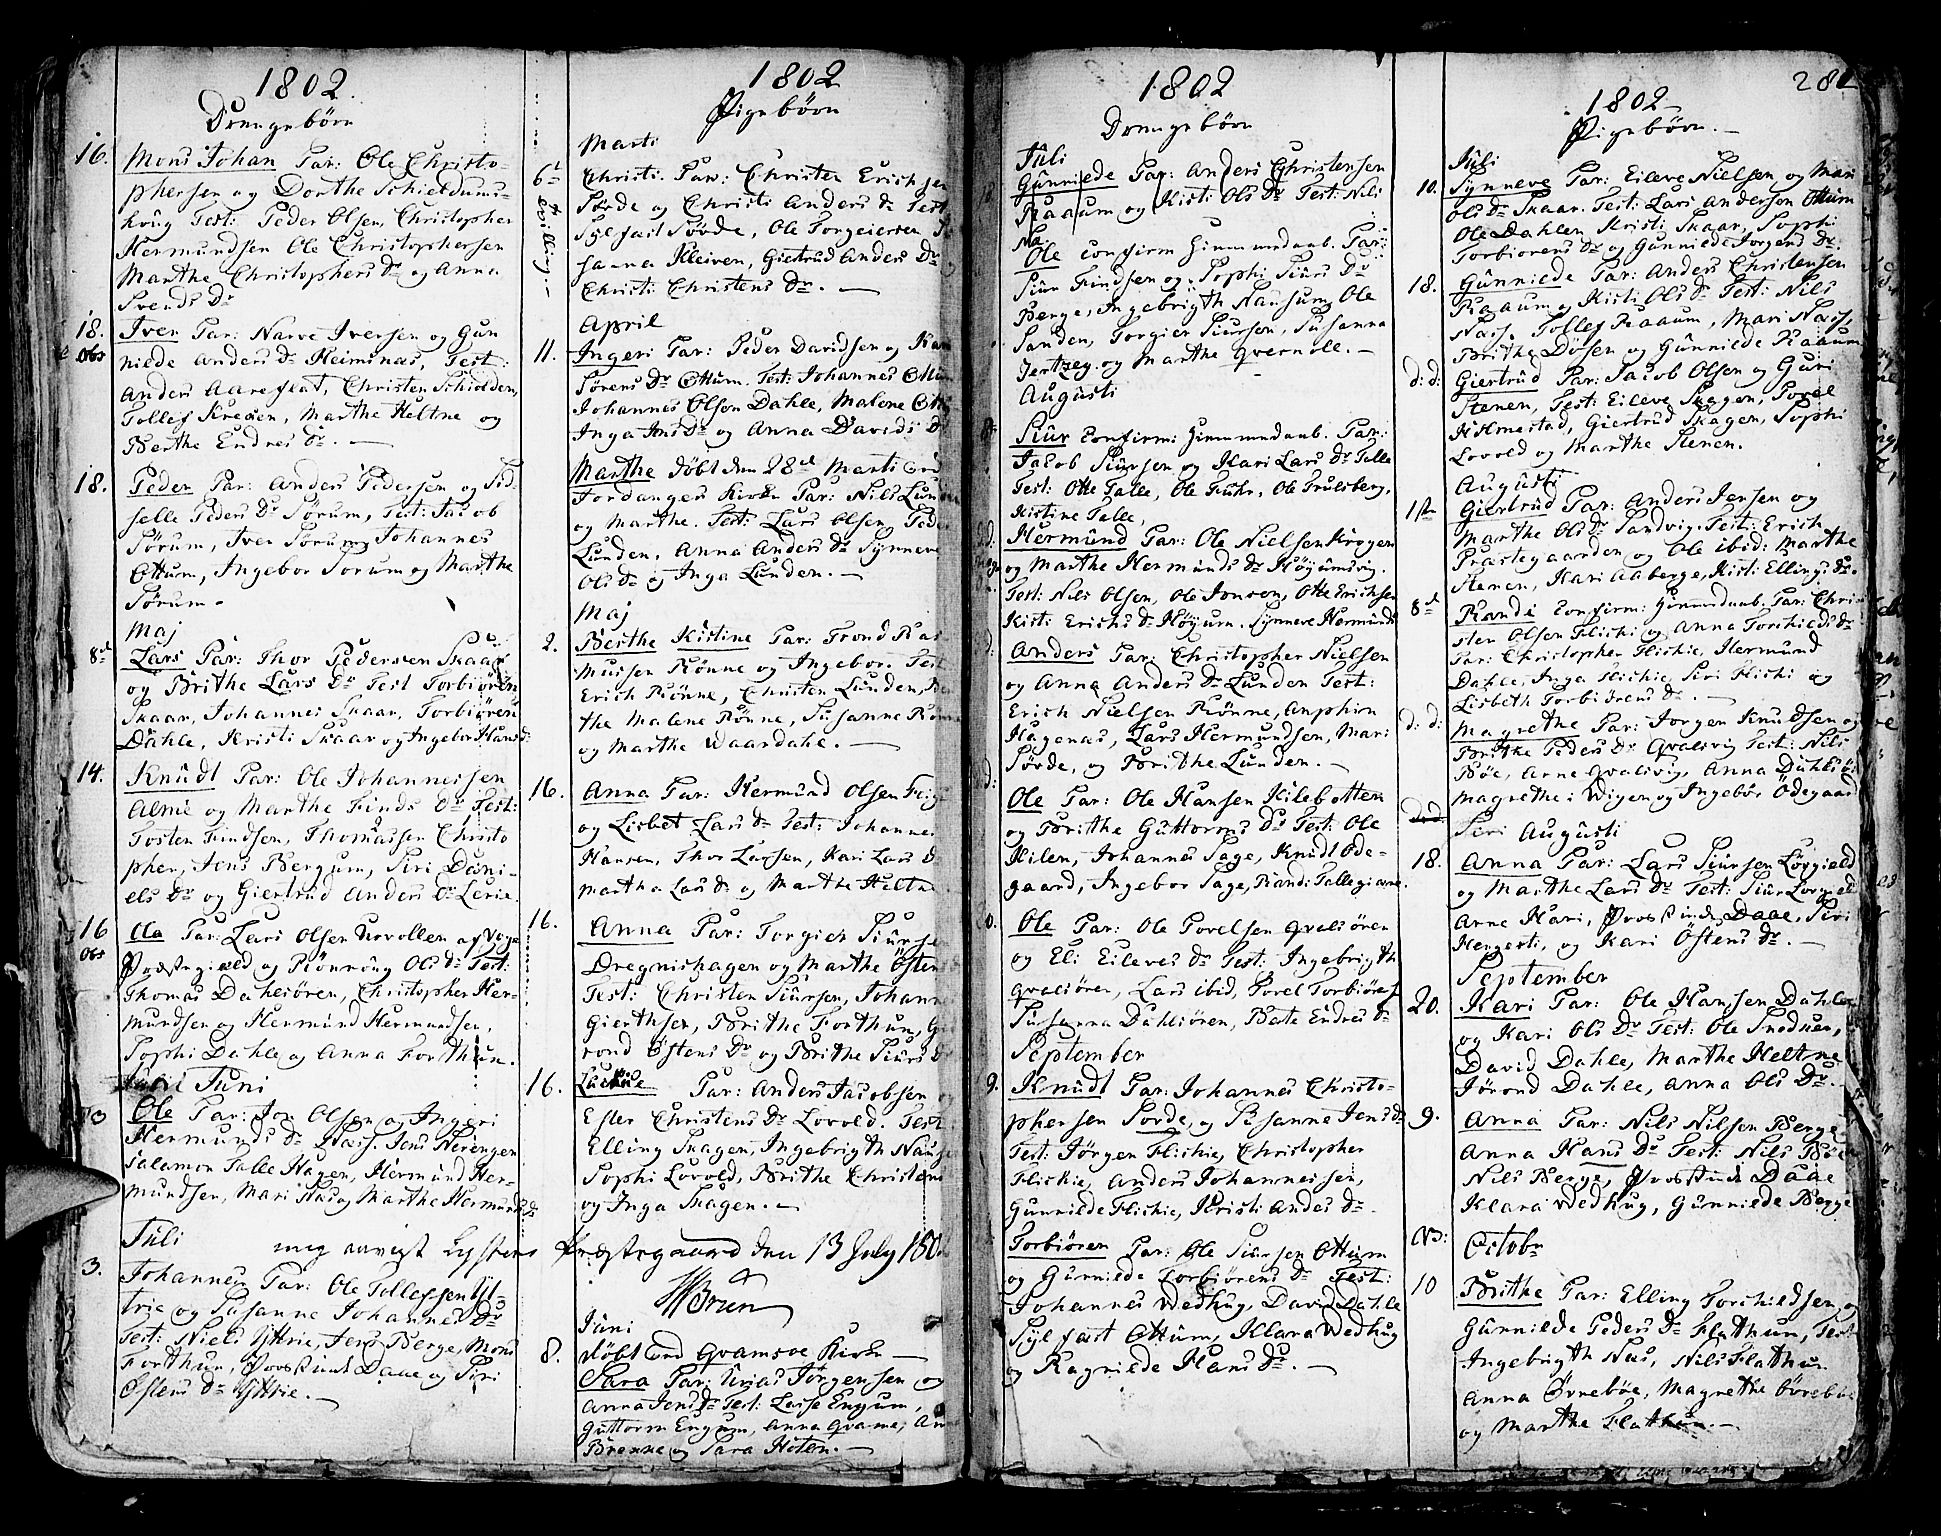 1802
Drengebörn
16. Mons Johan Par: Ole Christo-
phersen og Dorthe Schieldums-
Test: Peder Olsen, Christopher
Hermundsen Ole Christophersen
Marthe Christophers Dr og Anna
Svends Dr
18. Iver Par: Narve Iversen og Gun
Obs nilde Anders Dr Heimnæs, Test:
Anders Aareflat, Christen Schielden,
Tollef Kreken, Marthe Heltne og
Barthe Endres dr. —
18. Peder Par: Anders Pedersen og Sid-
selle Peders Dr Sørum, Test: Jacob
Sørum, Iver Sørum, Johannes
Ottum, Ingebor Sørum og Marthe
Sørum -
Maj
8de Lars Par: Thor Pedersen Skaar
og Brithe Lars Dr Test Torbiören
Skaar, Johannes Skaar, Torbiören
Dahle, Kristi Skaar og Ingebor Hans dr
14. Knudt Par: Ole Johannessen
Alme og Marthe Finds Dr Test:
Tosten Findsen, Thomassen Christo
pher, Jens Bergum, Siri Dani-
els Dr og Giertrud Anders Dr Lerie.
16 Ola Par: Lars Olsen
Obs Præstegield og Rönnoug Ols dr Test:
Thomas Dahlsören, Christopher Her-
mundsen og Hermund Hermundsen,
Sophi Dahle og Anna Forthun.
Juni
13 Ole Par: Jon Olsen og Ingeri
Hermunds Dr Næss. Jens Herengen
Salamon Talle Hagen, Hermund Her-
mundsen, Mari Næs og Marthe Hermunds dr
Juli
3. Johannes Par: Ole Tollefsen Yt-
trie og Susanne Johannes Dr
Test: Niels Yttrie, Jens Berge, Mons
Forthun, Provstinde Daae og Siri
Östens Dr Yttrie. —
1802
Pigebörn
Marti
6te Christi. Par: Christen Erichsen
Sörde og Christi Anders dr Test
Sylfast Sörde, Ole Torgeiersen
sanna Kleiven, Giertrud Anders Dr
Christi Christens Dr. —
April
11. Ingeri Par: Peder Davidsen og Kari
Sörens Dr Ottum. Test: Johannes Ottum
Johannes Olsen Dahle, Malene
Inga Jens Dr og Anna Davids D
Marthe döbt den 28de Marti ved
Fordanger Kirke Par: Nils Lunden
og Marthe. Test: Lars Olsen, Peder
Lunden, Anna Anders Dr Synneve
Ols Dr og Inga Lunden. —
Maj
2. Berthe Kistine Par: Trond Ras
mussen Rönne og Ingebor. Test
Erich Rönne, Christen Lunden, Ber
the Malene Rönne, Susanne Rönne
og Marthe Waardahl. —
16. Anna Par: Hermund Olsen
og Lisbet Lars Dr Test: Johannes
Hansen, Thor Larsen, Kari Lars D
Martha Lars dr og Marthe Heltne
16. Anna Par: Torgier Siursen
Dregnishagen og Marthe Östens
Test: Christen Siursen, Johann
Gierthsen, Brithe Forthun, Gu
rond Östens Dr og Brithe Siurs D
16. Par: Anders Jacobsen og
Esler Christens Dr Lovold. Test:
Elling Skagen, Ingebrigth
Sophi Lovold, Brithe Christens
og Inga Skagen. —
mig anvist Lysters Præstegaard den 13 July 180
Brun
Juni
8. döbt ved Qvamsöe Kirke —
Sara Par: Urias Jörgensen og
Anna Jens Dr Test: Lasse Engum,
Guttorm Engum, Anna Qvame,
Brenne og Sara Hoten. —
1802
Drengebörn
Juli
Gunnilde Par: Anders Christensen
Raaum og Kisti Ols Dr Test: Nils
Næ
Ole confirm Hiemmedaab. Par:
Siur Findsen og Sophi Siurs Dr
Berge, Ingebrigth Nausum, Ole
Sanden, Torgier Siursen, Susanna
og Marthe Qvernole. —
Augusti
Siur Confirm: Hiemmedaab. Par:
Jacob Siursen og Kari Lars Dr Talle
Test: Otte Talle, Ole Fuhr, Ole Fuglsberg,
Kistine Talle,
Hermund Par: Ole Nielsen Krogen
og Marthe Hermunds Dr Höjumsvig.
Test: Nils Olsen, Ole Jonsen, Otte Erichsen
Kisti Erichs Dr Höjum. Synneve Hermunds
Anders Par: Christopher Nielsen
og Anna Anders Dr Lunden Test:
Erich Nielsen Rönne, Anphin
Hagenæs, Lars Hermundsen, Mari
Sörde, og Brithe Lunden. —
Ole Par: Ole Hansen Kilebotten
og Brithe Guttorms Dr Test: Ole
Kilen, Johannes Sage, Knudt Ode-
gaard, Ingebor Sage, Randi Tallegierne.
Ole Par: Ole Povelsen Qvalsören
og Eli Eileves Dr Test: Ingebrigth
Qvalsören, Lars ibid, Povel Torbiörs
Susanna Dahlsören, Beate Endres Dr
September
9. Knudt Par: Johannes Christo-
phersen Sörde, og Susanne Jens dr
Test: Jörgen Flickie, Christopher
Flickie, Anders Johannessen,
Gunnilde Flickie, Kristi Anders Dr.
Torbiören Par: Ole Siursen Ottum
og Gunnilde Torbiörens Dr Test:
Johannes Wedhug, David Dahle
Sylfast Ottum, Klara Wedhug
og Ragnilde Hans Dr. —
282
1802
Pigebörn. —
Juli
10. Synneve Par: Eileve Nielsen og Mari
Ols Dr Skaar. Test: Lars Anderson Ottum
Ole Dahlen Kristi Skaar, Sophi
Torbiörens Dr og Gunnilde Jorgens Dr.
18. Gunnilde Par: Anders Christensen
Raaum og Kisti Ols Dr Test: Nils
Næss, Tollef Raaum, Mari Næss,
Brithe Dösen og Gunnilde Raaum
d: d: Giertrud Par: Jacob Olsen og Guri
Stenen, Test: Eileve Skagen, Povel
Holmestad, Giertrud Skagen, Sophi
Lovold og Marthe Stenen.
Augusti
1ste Giertrud Par: Anders Jensen og
Marthe Ols Dr Sandvig. Test: Erich
Præstegaarden og Ole ibid: Marthe
Stenen, Kari Aaberge, Kisti Ellings dr.
8de Randi Confirm: Hiemmedaab. Par: Chri
sten Olsen Flickie og Anna Torchilds dr
Par: Christopher Flickie, Hermund
Dahle, Inga Flickie, Siri Flickie og
Lisbeth Torbiörens dr. —
d: d: Magrethe Par: Jorgen Knudsen og
Brithe Peders Dr Qvalsvig Test: Nils
Böe, Arne Qvalsvig, Anna Dahlsö
Magrethe i Wigen og Ingebör Ödegaard
Siri Augusti
18. Anna Par: Lars Siursen Löygield
og Marthe Lars Dr Test: Siur Loygield
Arne Kari, Provstinde Daae, Siri
Hengesti, og Kari Östens Dr. —
September
20. Kari Par: Ole Hanssen Dahle
og Kari Ols Dr Test: Ole Snednen,
David Dahle, Marthe Heltne
Jörond Dahle, Anna Ols Dr.
9. Anna Par: Nils Nilsen Berge
Anna Hans Dr Test: Nils Böe
Nils Berge, Provstinde Daae
Klara Wedhug, Gunnilde Berge
NB: Octobr
10 Brithe Par: Elling Torchildsen og
Gunnilde Peders Dr Flathun, Test
Ingebrigth Næs, Nils Flathun
Anna Örneböe, Magrethe Örneböe
og Marthe Flathun. —